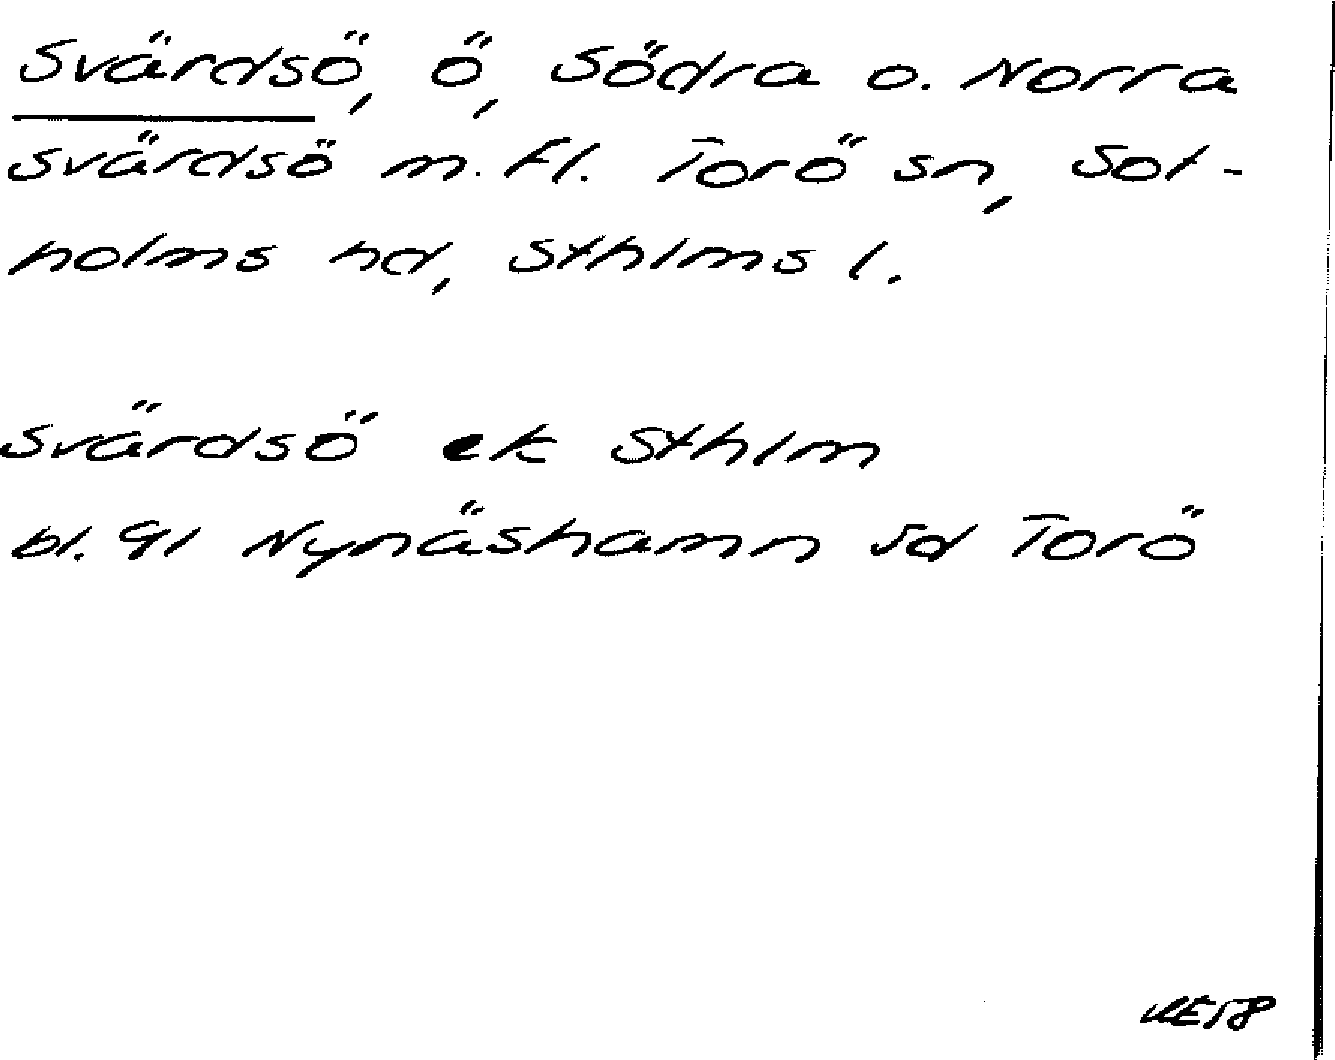 Svärdsö, ö, Södra o. Norra
Svärdsö m. fl. Torö sn, Sot-
holms hd, Sthlms l.
Svärdsö ek Sthlm
bl. 91 Nynäshamn Sd Torö